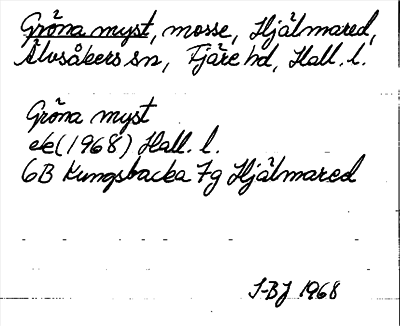 Gröna myst, mosse, Hjälmared,
Älvsåkers sn, Fjäre hd, Hall. l.
Gröna myst
ek (1968) Hall. l.
6B Kungsbacka 7g Hjälmared
S-BJ 1968